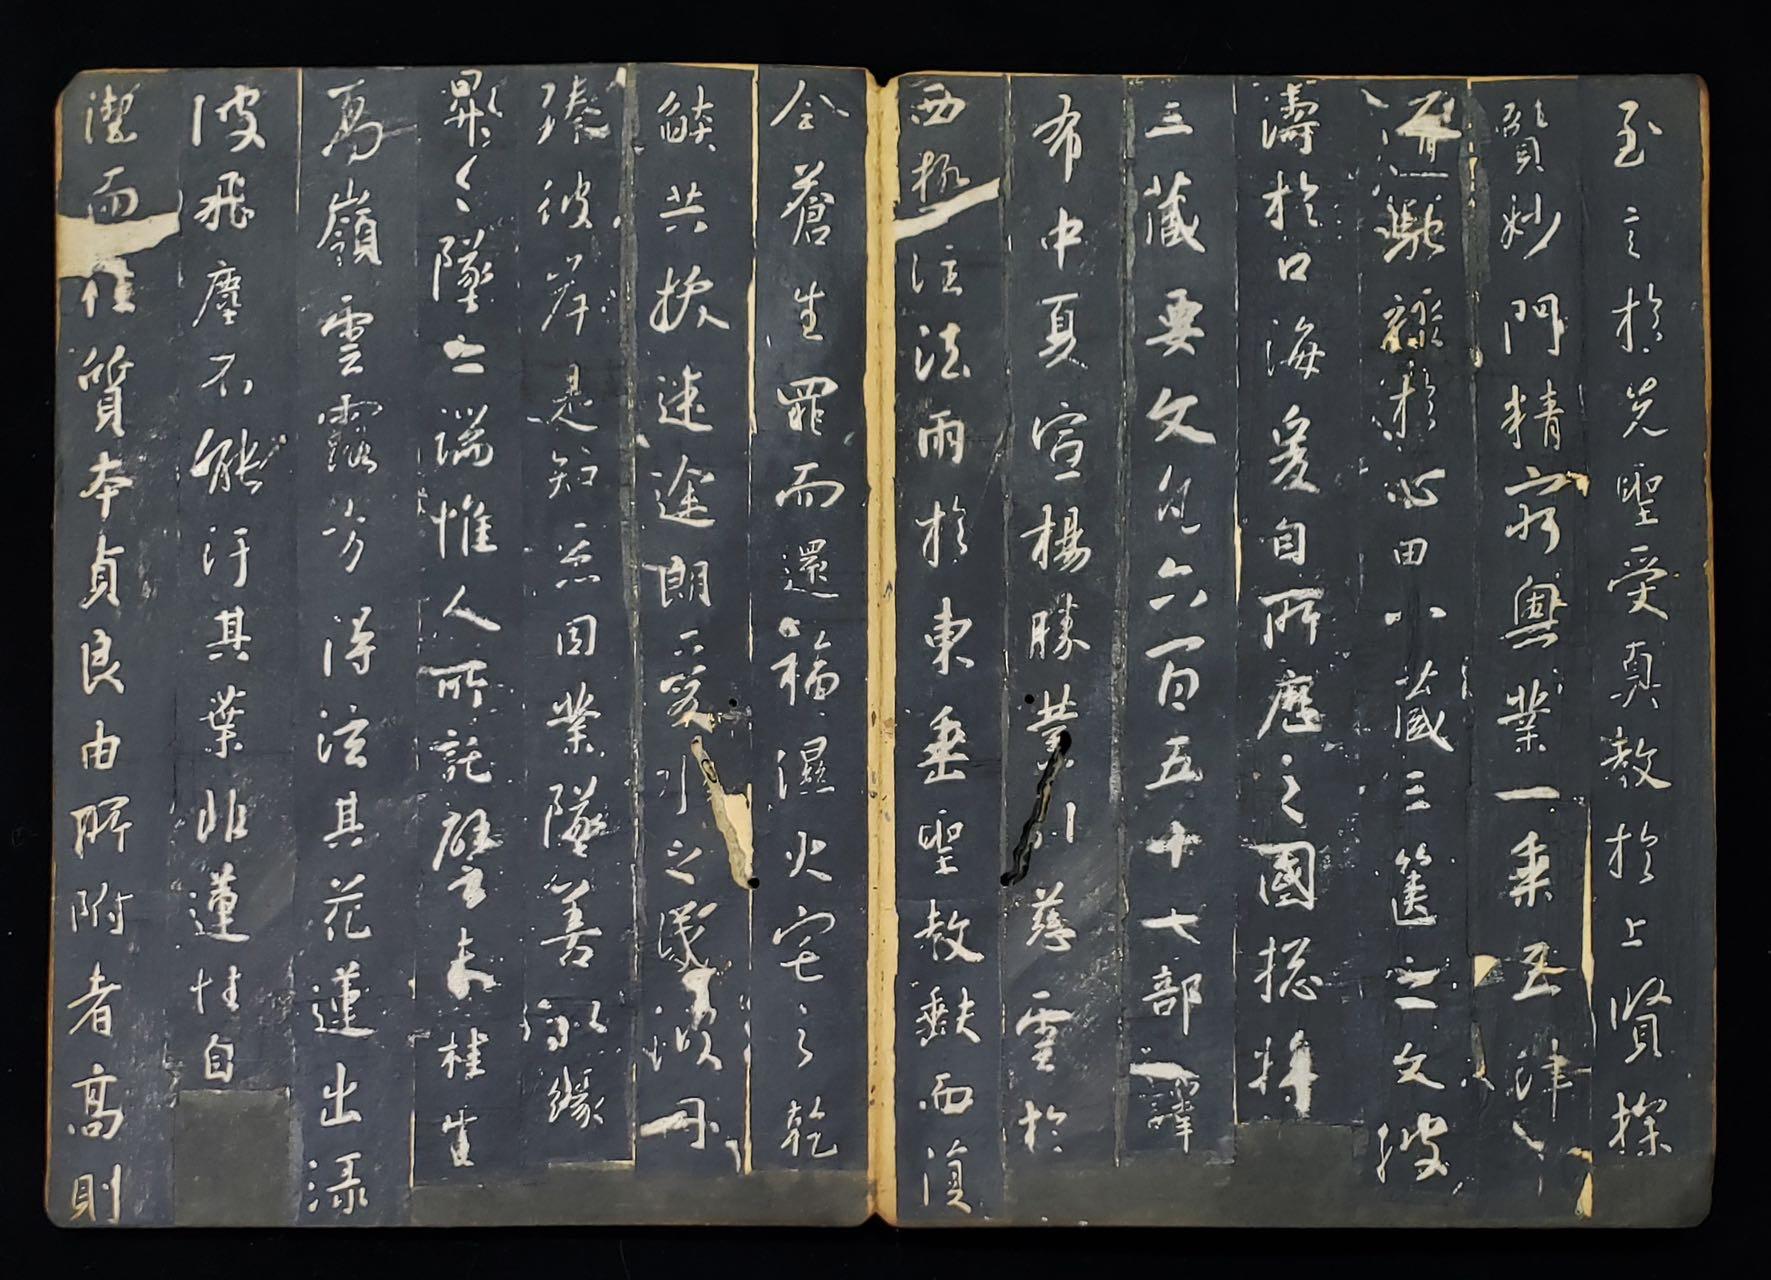 至言於先聖受真教於上賢探
賾妙門精窮奧業一乘五律
道馳驟於心田八藏三篋之文波
濤於口海爰自所歷之國摠將
三藏要文凡六百五十七部譯
布中夏宣揚勝業引慈雲於
西極注法雨於東垂聖教缺而復
全蒼生罪而還福濕火宅之乾
燄共拔迷途朗愛水之昏波同
臻彼岸是知惡因業墜善以緣
昇昇墜之端惟人所託譬夫桂生
高嶺雲露方得泫其花蓮出淥
波飛塵不能汙其葉非蓮性自
潔而桂質本貞良由所附者高則